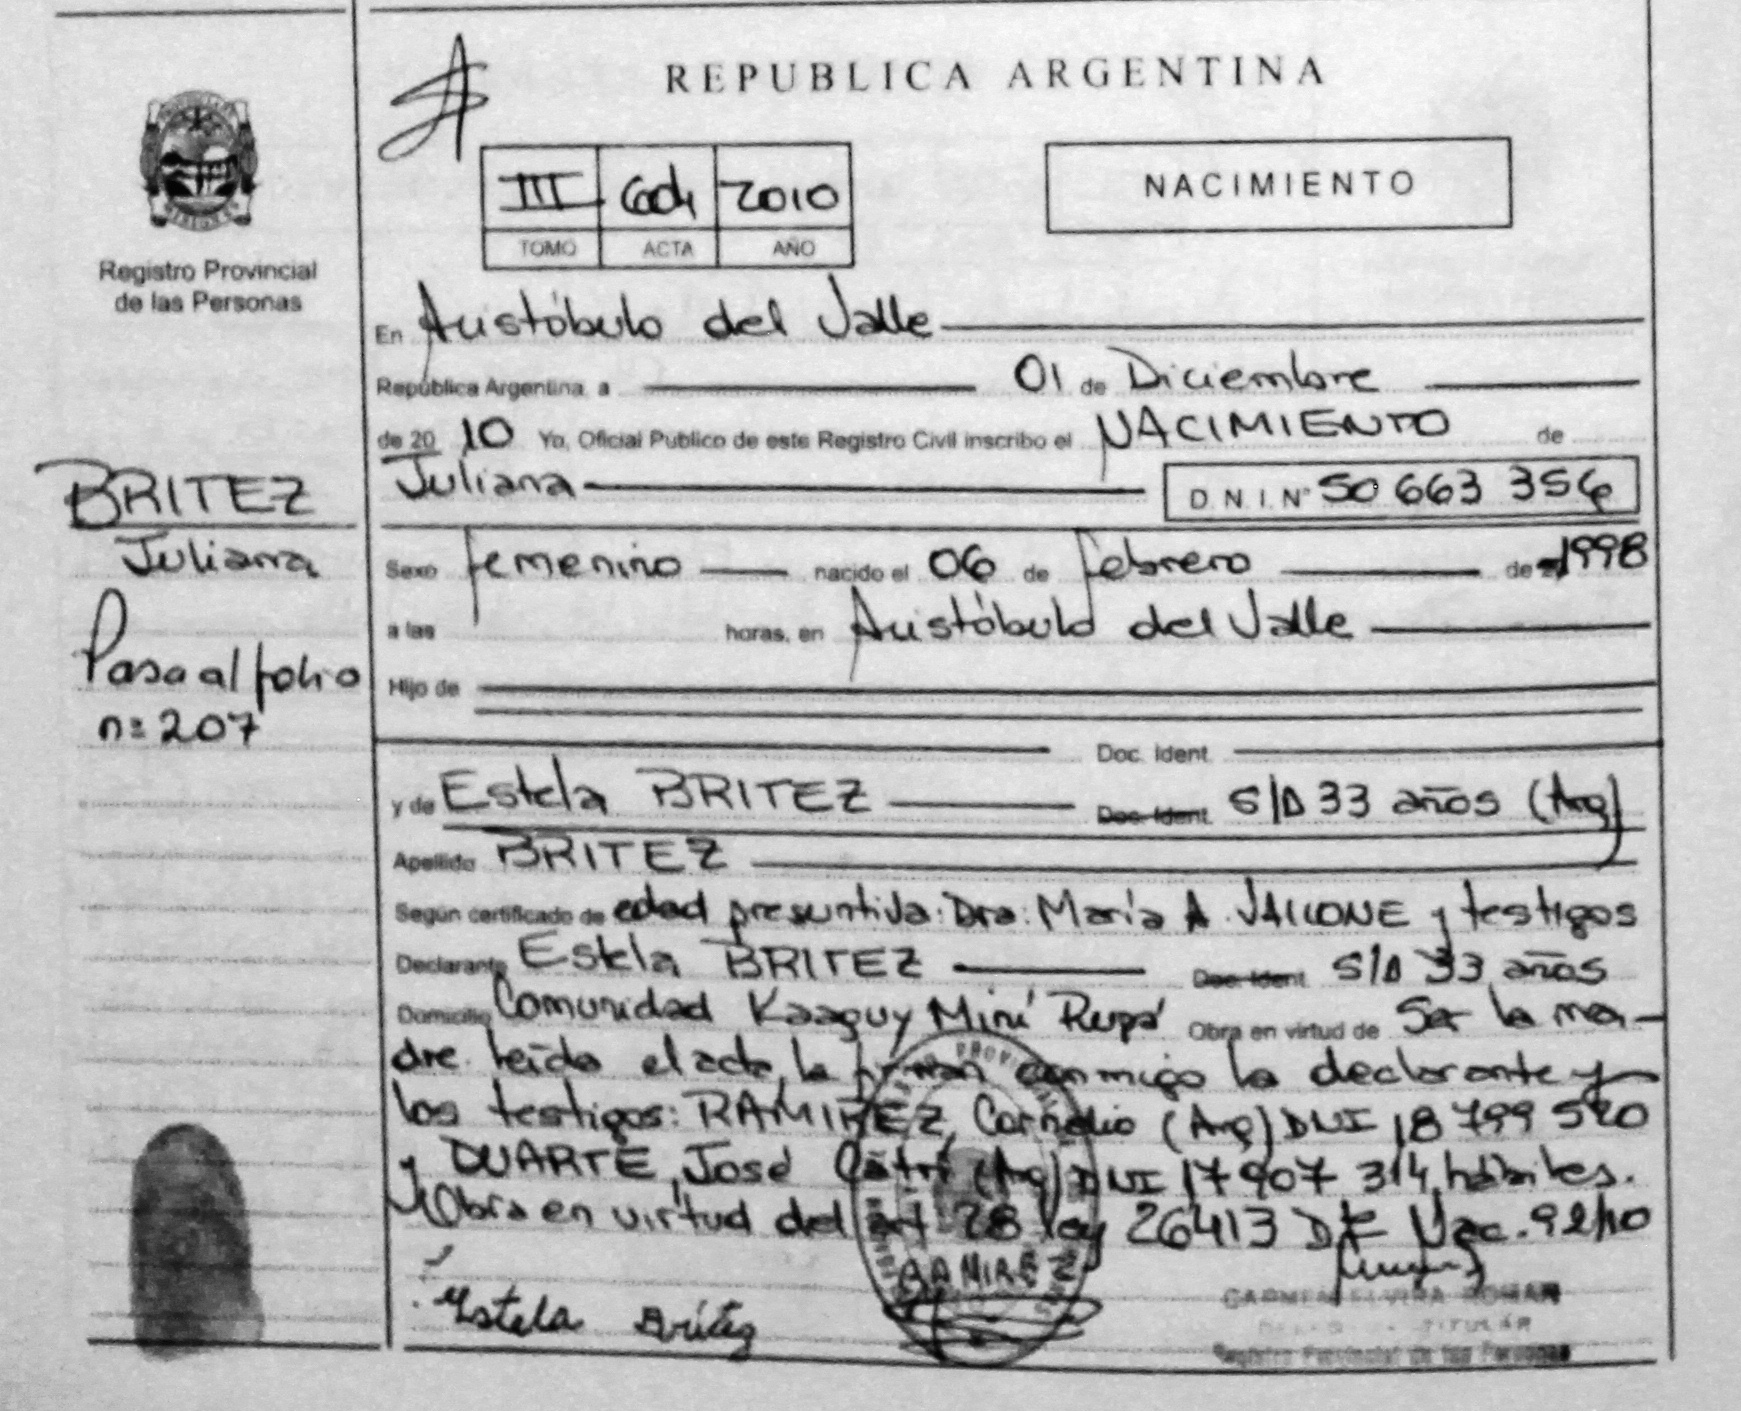 REPUBLICA ARGENTINA
III 604 2010
TOMO ACTA AÑO
NACIMIENTO
Registro Provincial
de las Personas
En Aristóbulo del Valle
República Argentina a 01 de Diciembre
de 20 10 Yo, Oficial Publico de este Registro Civil inscribo el NACIMIENTO de
Juliana D.N.I. Nº 50 663 356
BRITEZ
Juliana
Pasa al folio
nº 207
Sexo femenino nacido el 06 de febrero de 1998
a las horas, en Aristóbulo del Valle
Hijo de
Doc. Ident.
y de Estela BRITEZ Doc. Ident. S/D 33 años (Arg)
Apellido BRITEZ
Según certificado de edad presuntiva: Dra: María A. y testigos
Declarante Estela BRITEZ Doc. Ident. S/D 33 años
Domicilio Comunidad Kaaguy Mirí Rupá Obra en virtud de Ser la ma-
dre. leída el acta, la firman conmigo la declarante y
los testigos: RAMIREZ, Cornelio (Arg) DNI 18 799 520
y DUARTE, José (Arg) DNI 17 907 314, hábiles.
Obra en virtud del art 28 ley 26413 Nac. 92/10
RAMIREZ
Estela Britez
CARMEN ELVIRA ROMAN
TITULAR
Registro Provincial de las Personas